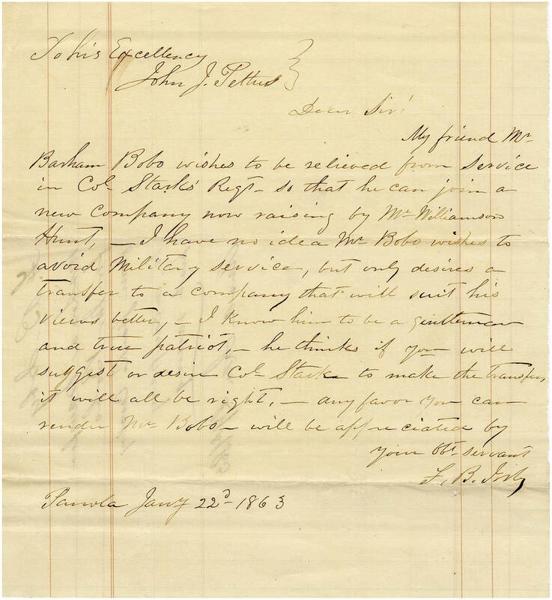 To his Excellency
John J. Pettus
Dear Sir!
My friend Mr
Barham Bobo wishes to be relieved from service
in Col Starks Regt - so that he can join a
new company now raising by Mr Williamson
Hunt, - I have no idea Mr Bobo wishes to
avoid Military service, but only desires a
transfer to a company that will suit his
views better, - I know him to be a gentleman
and true patriot, - he thinks if you will
suggist or desire Col Stark to make the transfer,
it will all be right, - any favor you can
render Mr Bobo - will be appreciated by
your Obt servant
F. B.
Panola Jany 22d 1863